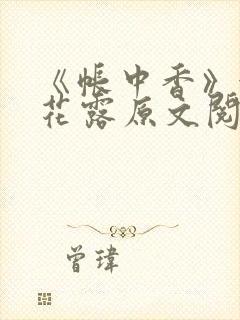 《帐中香》
花露原文阅
曾瑋